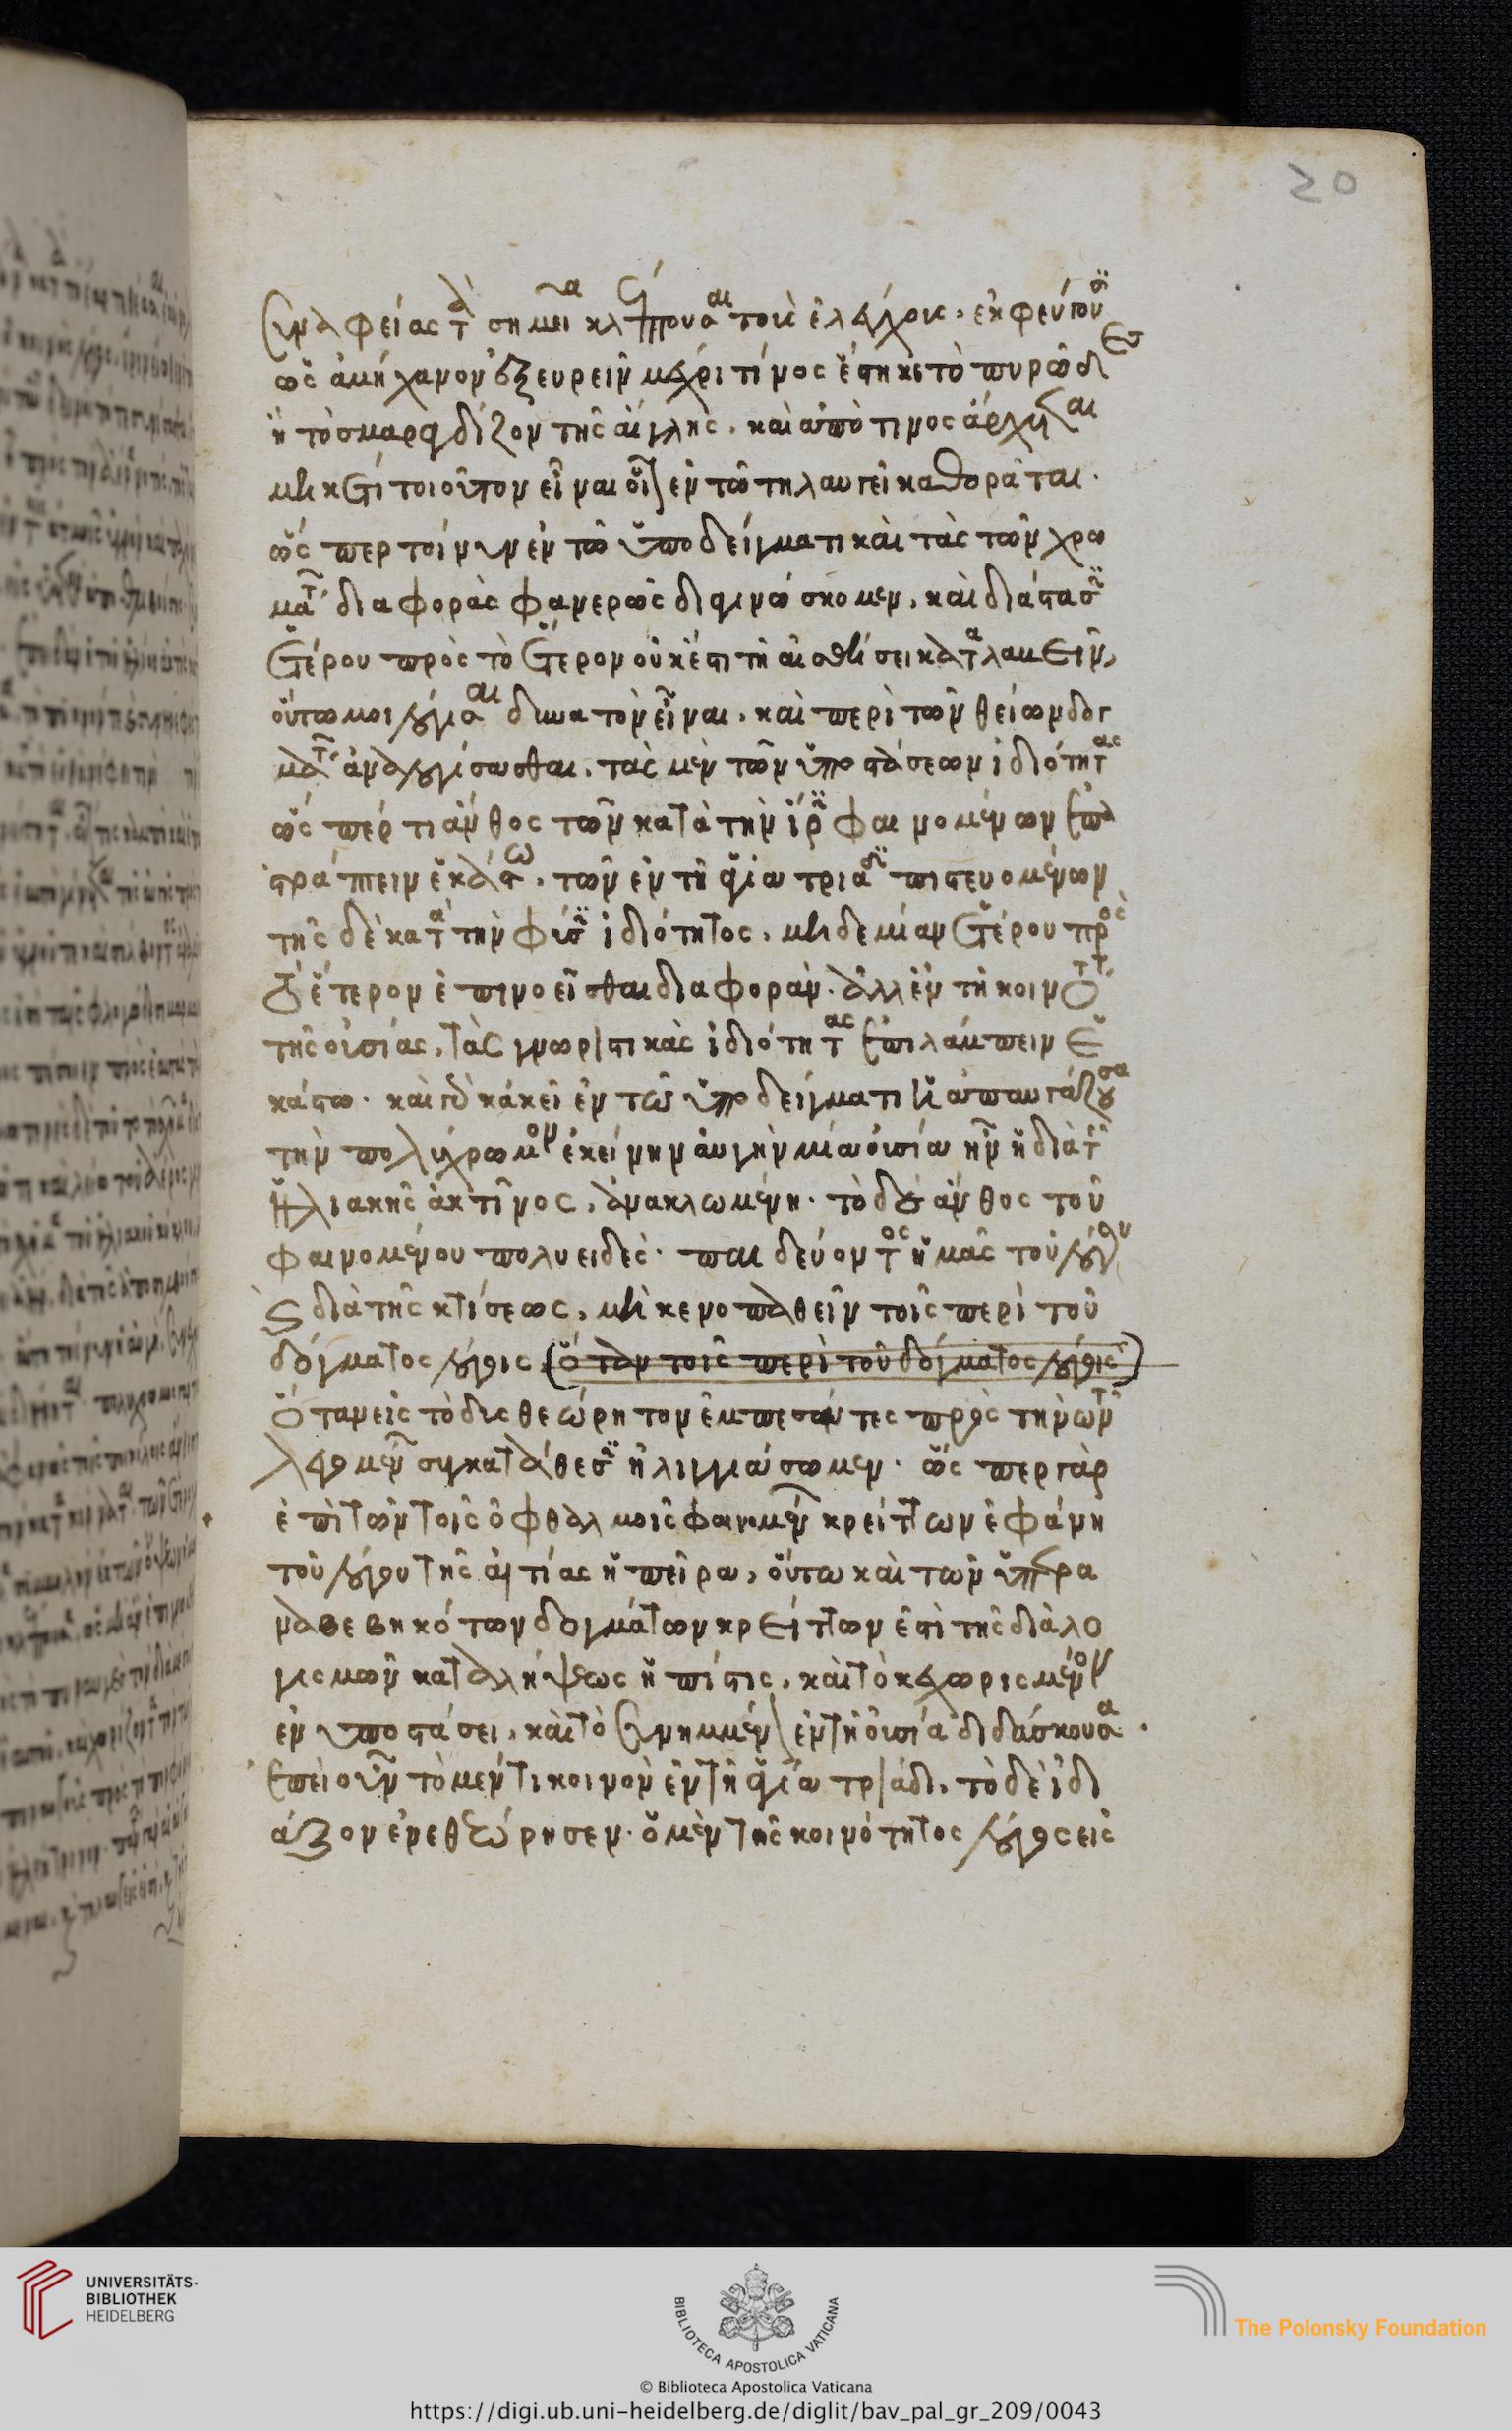 20
συναφείας τὰ σημεῖα κλέπτουσαι τοὺς ἐλέγχους. ἐκφεύγουσιν
ὡς ἀμήχανον ἐξευρεῖν μέχρι τίνος ἕστηκε τὸ πυρῶδες
ἢ τὸ σμαραγδίζον τῆς αἴγλης. καὶ ἀπὸ τίνος ἄρχεται
μηκέτι τοιοῦτον εἶναι οἷον ἐν τῷ τηλαυγεῖ καθορᾶται.
ὥσπερ τοίνυν ἐν τῷ ὑποδείγματι καὶ τὰς τῶν χρω
μάτων διαφορὰς φανερῶς διαγινώσκομεν, καὶ διάστασιν
ἑτέρου πρὸς τὸ ἕτερον οὐκ ἔστι τῇ αἰσθήσει καταλαβεῖν,
οὕτω μοι λόγισαι δυνατὸν εἶναι. καὶ περὶ τῶν θείων δογ
μάτων ἀναλογίσασθαι. τὰς μὲν τῶν ὑποστάσεων ἰδιότητας
ὥσπερ τι ἄνθος τῶν κατὰ τὴν ἶριν φαινομένων ἐπα
στράπτειν ἑκάστω. τῶν ἐν τῇ ἁγία τριάδι πιστευομένων
τῆς δὲ κατὰ τὴν φύσιν ἰδιότητος, μηδεμίαν ἑτέρου πρὸς
τὸ ἕτερον ἐπινοεῖσθαι διαφοράν. ἀλλ' ἐν τῇ κοινότητι
τῆς οὐσίας, τὰς γνωριστικὰς ἰδιότητας ἐπιλάμπειν ἑ
κάστω. καὶ γὰρ κἀκεῖ ἐν τῷ ὑποδείγματι ἡ ἀπαυγάζουσα
τὴν πολύχρωμον ἐκείνην αὐγὴν μία οὐσία ἦν ἡ διὰ τῆς
ἡλιακῆς ἀκτῖνος, ἀνακλωμένη. τὸ δὲ ἄνθος τοῦ
φαινομένου πολυειδές. παιδεύοντος ἡμᾶς τοῦ λόγου
καὶ διὰ τῆς κτίσεως, μὴ κενοπαθεῖν τοῖς περὶ τοῦ
δόγματος λόγοις (ὅταν τοῖς περὶ τοῦ δόγματος λόγοις)
ὅταν εἰς τὸ δυσθεώρητον ἐμπεσόντες πρὸς τὴν τῶν
λεγομένων συγκατάθεσιν ἰλιγγιάσωμεν. ὥσπερ γὰρ
ἐπὶ τῶν τοῖς ὀφθαλμοῖς φαινομένων κρείττων ἐφάνη
τοῦ λόγου τῆς αἰτίας ἡ πεῖρα, οὕτω καὶ τῶν ὑπερα
ναβεβηκότων δογμάτων κρείττων ἐστὶ τῆς διὰ λο
γισμῶν καταλήψεως ἡ πίστις, καὶ τὸ κεχωρισμένον
ἐν ὑποστάσει, καὶ τὸ συνημμένον ἐν τῇ οὐσία διδάσκουσα.
ἐπεὶ οὖν τὸ μέν τι κοινὸν ἐν τῇ ἁγία τριάδι, τὸ δὲ ἰδι
άζον ἐνεθεώρησεν. ὁ μὲν τῆς κοινότητος λόγος εἰς
UNIVERSITÄTS-
BIBLIOTHEK
HEIDELBERG
BIBLIOTECA APOSTOLICA VATICANA
The Polonsky Foundation
© Biblioteca Apostolica Vaticana
https://digi.ub.uni-heidelberg.de/diglit/bav_pal_gr_209/0043